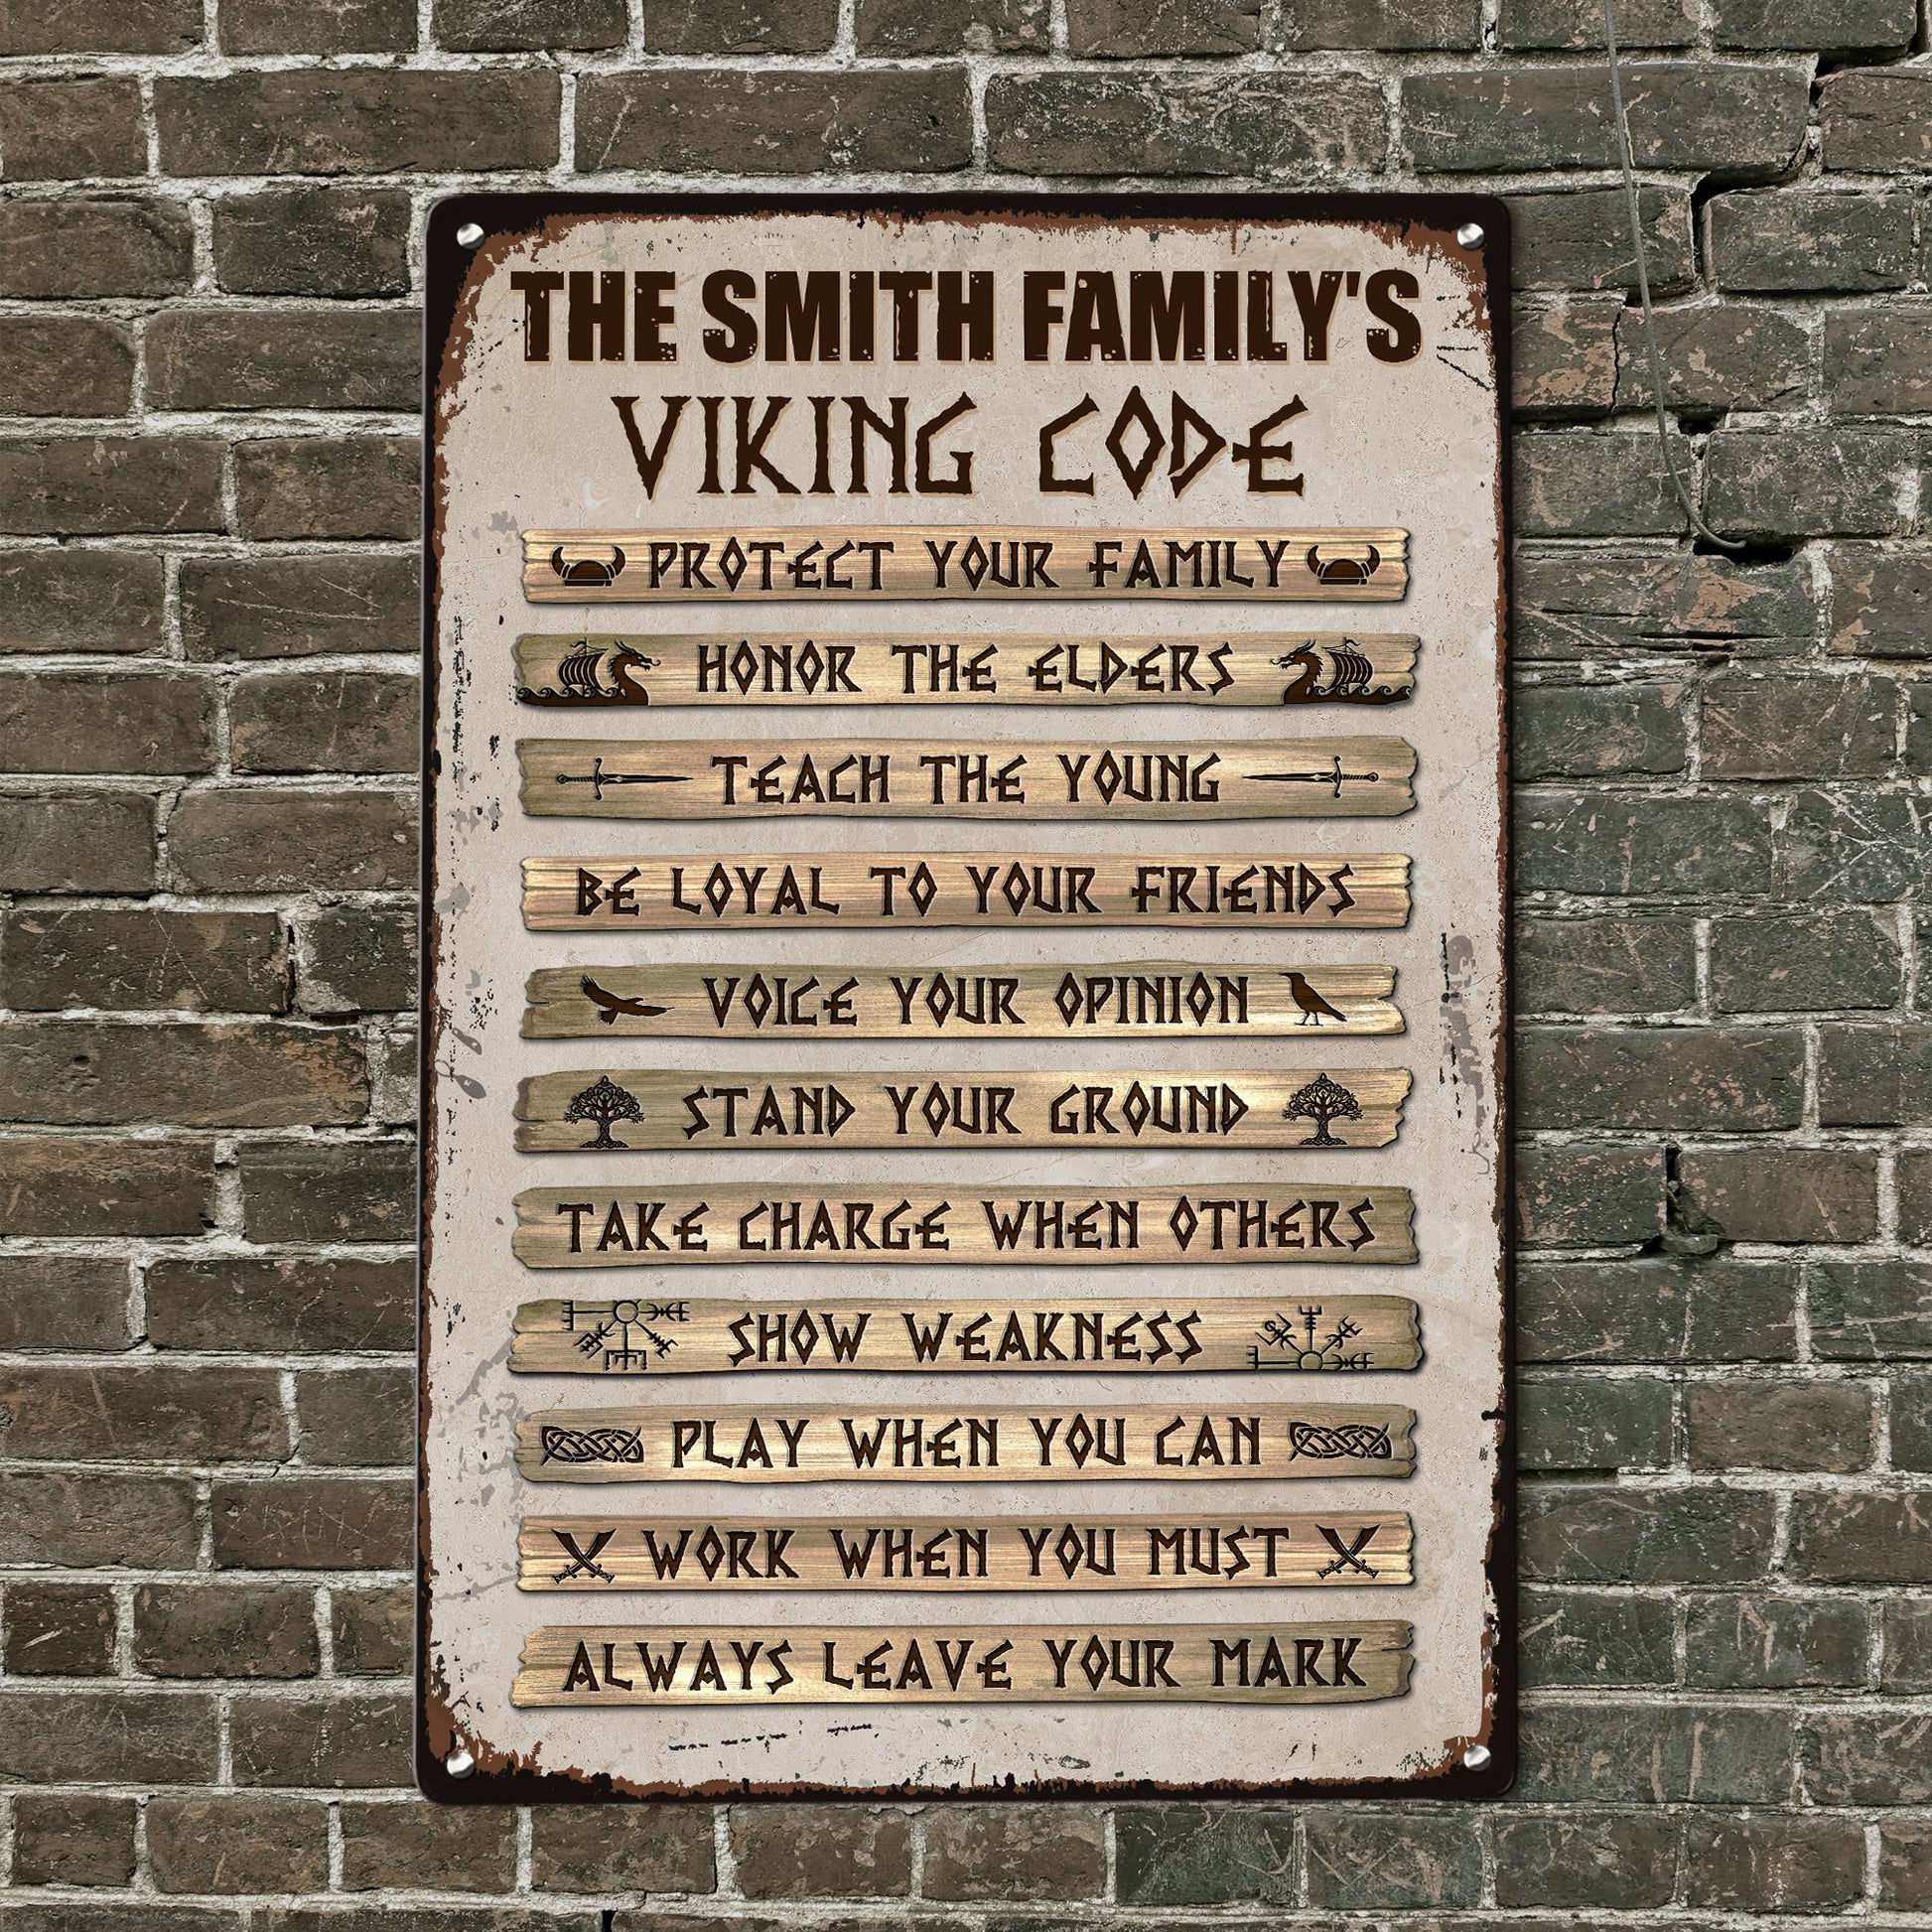 THE SMITH FAMILY'S
VIKING CODE
PROTECT YOUR FAMILY
HONOR THE ELDERS
TEACH THE YOUNG
BE LOYAL TO YOUR FRIENDS
VOICE YOUR OPINION
STAND YOUR GROUND
TAKE CHARGE WHEN OTHERS
SHOW WEAKNESS
PLAY WHEN YOU CAN
WORK WHEN YOU MUST
ALWAYS LEAVE YOUR MARK